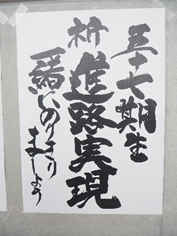 五十七期生
祈 進路実現
一緒にのりきり
ましょう